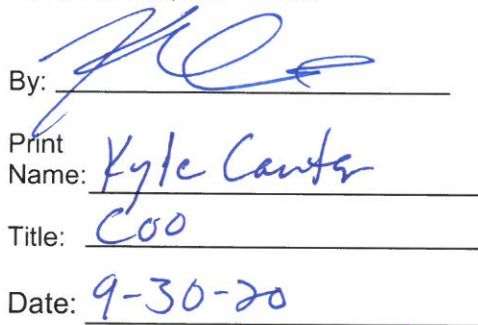 By:
Print
Name: Kyle Canter
Title: COO
Date: 9-30-20